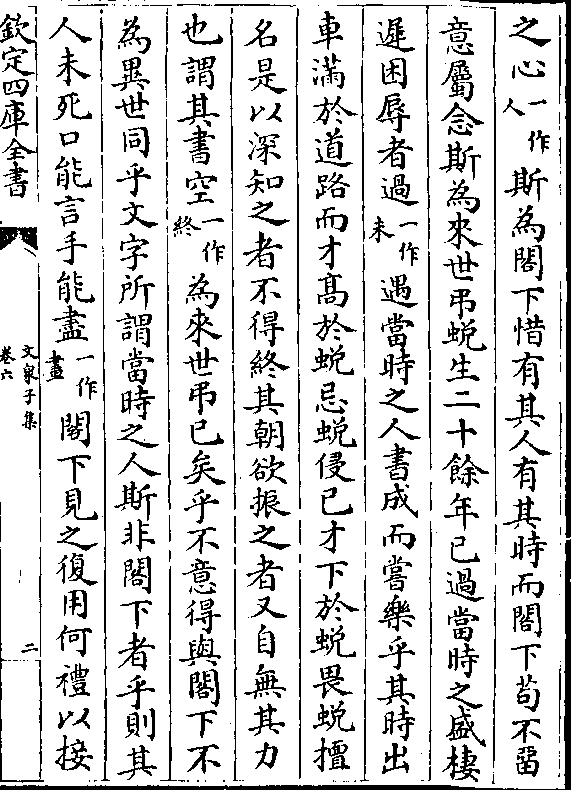 之心一作人斯為閣下惜有其人有其時而閣下苟不畱
意屬念斯為來世弔蛻生二十餘年已過當時之盛棲
遲困辱者過一作未遇當時之人書成而嘗樂乎其時出
車滿於道路而才髙於蛻忌蛻侵已才下於蛻畏蛻擅
名是以深知之者不得終其朝欲振之者又自無其力
也謂其書空一作終為來世弔已矣乎不意得與閣下不
為異世同乎文字所謂當時之人斯非閣下者乎則其
人未死口能言手能盡一作畫閣下見之復用何禮以接
欽定四庫全書
文泉子集
卷六
二